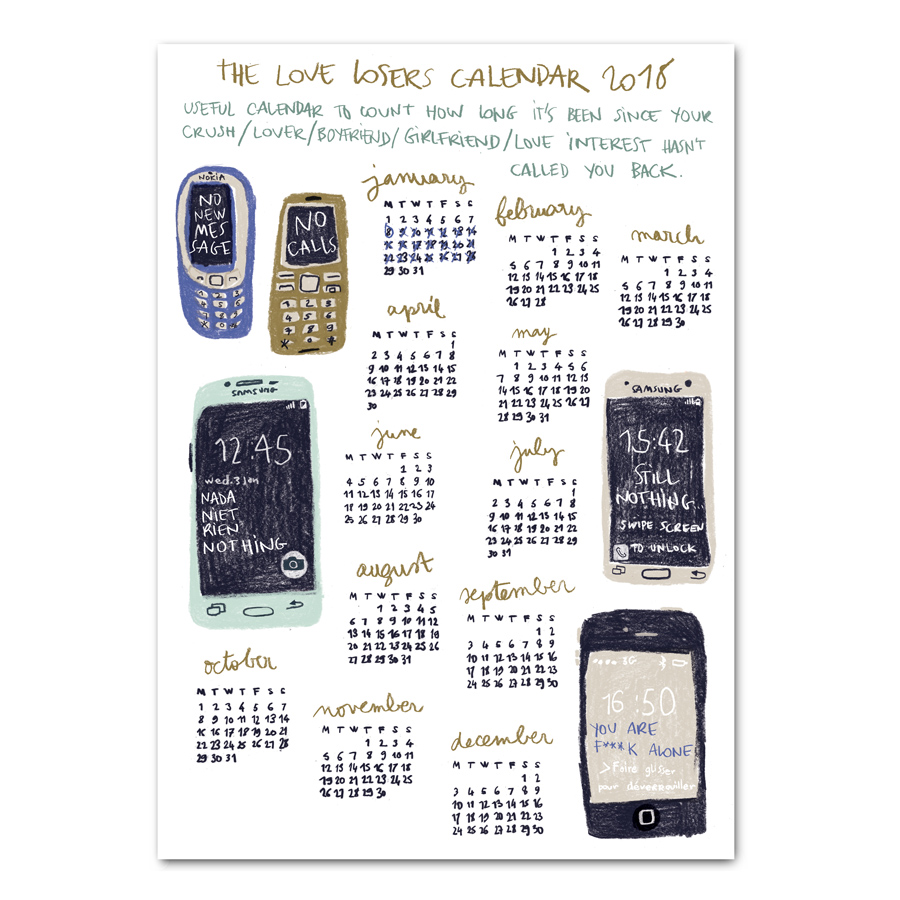 THE LOVE LOSERS CALENDAR 2018
USEFUL CALENDAR TO COUNT HOW LONG IT'S BEEN SINCE YOUR
CRUSH/LOVER/BOYFRIEND/GIRLFRIEND/LOVE INTEREST HASN'T
CALLED YOU BACK.
NOKIA
NO
NEW
MES
SAGE
1 2 3
4 5 6
7 8 9
* 0 #
NO
CALLS
1 2 3
4 5 6
7 8 9
* 0 #
january
M T W T F S S
1 2 3 4 5 6 7
8 9 10 11 12 13 14
15 16 17 18 19 20 21
22 23 24 25 26 27 28
29 30 31
february
M T W T F S S
1 2 3 4
5 6 7 8 9 10 11
12 13 14 15 16 17 18
19 20 21 22 23 24 25
26 27 28
march
M T W T F S S
1 2 3 4
5 6 7 8 9 10 11
12 13 14 15 16 17 18
19 20 21 22 23 24 25
26 27 28 29 30
april
M T W T F S S
1
2 3 4 5 6 7 8
9 10 11 12 13 14 15
16 17 18 19 20 21 22
23 24 25 26 27 28 29
30
may
M T W T F S S
1 2 3 4 5 6
7 8 9 10 11 12 13
14 15 16 17 18 19 20
21 22 23 24 25 26 27
28 29 30 31
SAMSUNG
12:45
wed.3 Jan
NADA
NIET
RIEN
NOTHING
june
M T W T F S S
1 2 3
4 5 6 7 8 9 10
11 12 13 14 15 16 17
18 19 20 21 22 23 24
25 26 27 28 29 30
july
M T W T F S S
1
2 3 4 5 6 7 8
9 10 11 12 13 14 15
16 17 18 19 20 21 22
23 24 25 26 27 28 29
30 31
SAMSUNG
15:42
STILL
NOTHING...
SWIPE SCREEN
TO UNLOCK
august
M T W T F S S
1 2 3 4 5
6 7 8 9 10 11 12
13 14 15 16 17 18 19
20 21 22 23 24 25 26
27 28 29 30 31
september
M T W T F S S
1 2
3 4 5 6 7 8 9
10 11 12 13 14 15 16
17 18 19 20 21 22 23
24 25 26 27 28 29 30
october
M T W T F S S
1 2 3 4 5 6 7
8 9 10 11 12 13 14
15 16 17 18 19 20 21
22 23 24 25 26 27 28
29 30 31
november
M T W T F S S
1 2 3 4
5 6 7 8 9 10 11
12 13 14 15 16 17 18
19 20 21 22 23 24 25
26 27 28 29 30
december
M T W T F S S
1 2
3 4 5 6 7 8 9
10 11 12 13 14 15 16
17 18 19 20 21 22 23
24 25 26 27 28 29 30
16:50
YOU ARE
F***K ALONE
> Faire glisser
pour déverrouiller